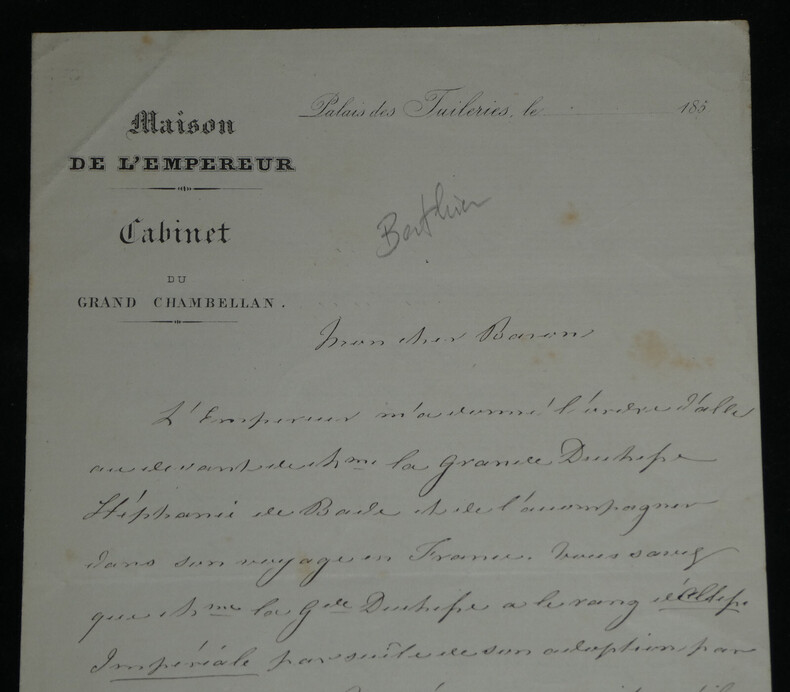 Maison
DE L'EMPEREUR
Palais des Tuileries, le 185
Cabinet
DU
GRAND CHAMBELLAN.
Berthier
Mon cher Baron
L'Empereur m'a donné l'ordre d'aller
au devant de Mme la Grande Duchesse
Stéphanie de Bade et de l'accompagner
dans son voyage en France. Vous savez
que Mme la Gde Duchesse a le rang d'Altesse
Impériale par suite de son adoption par